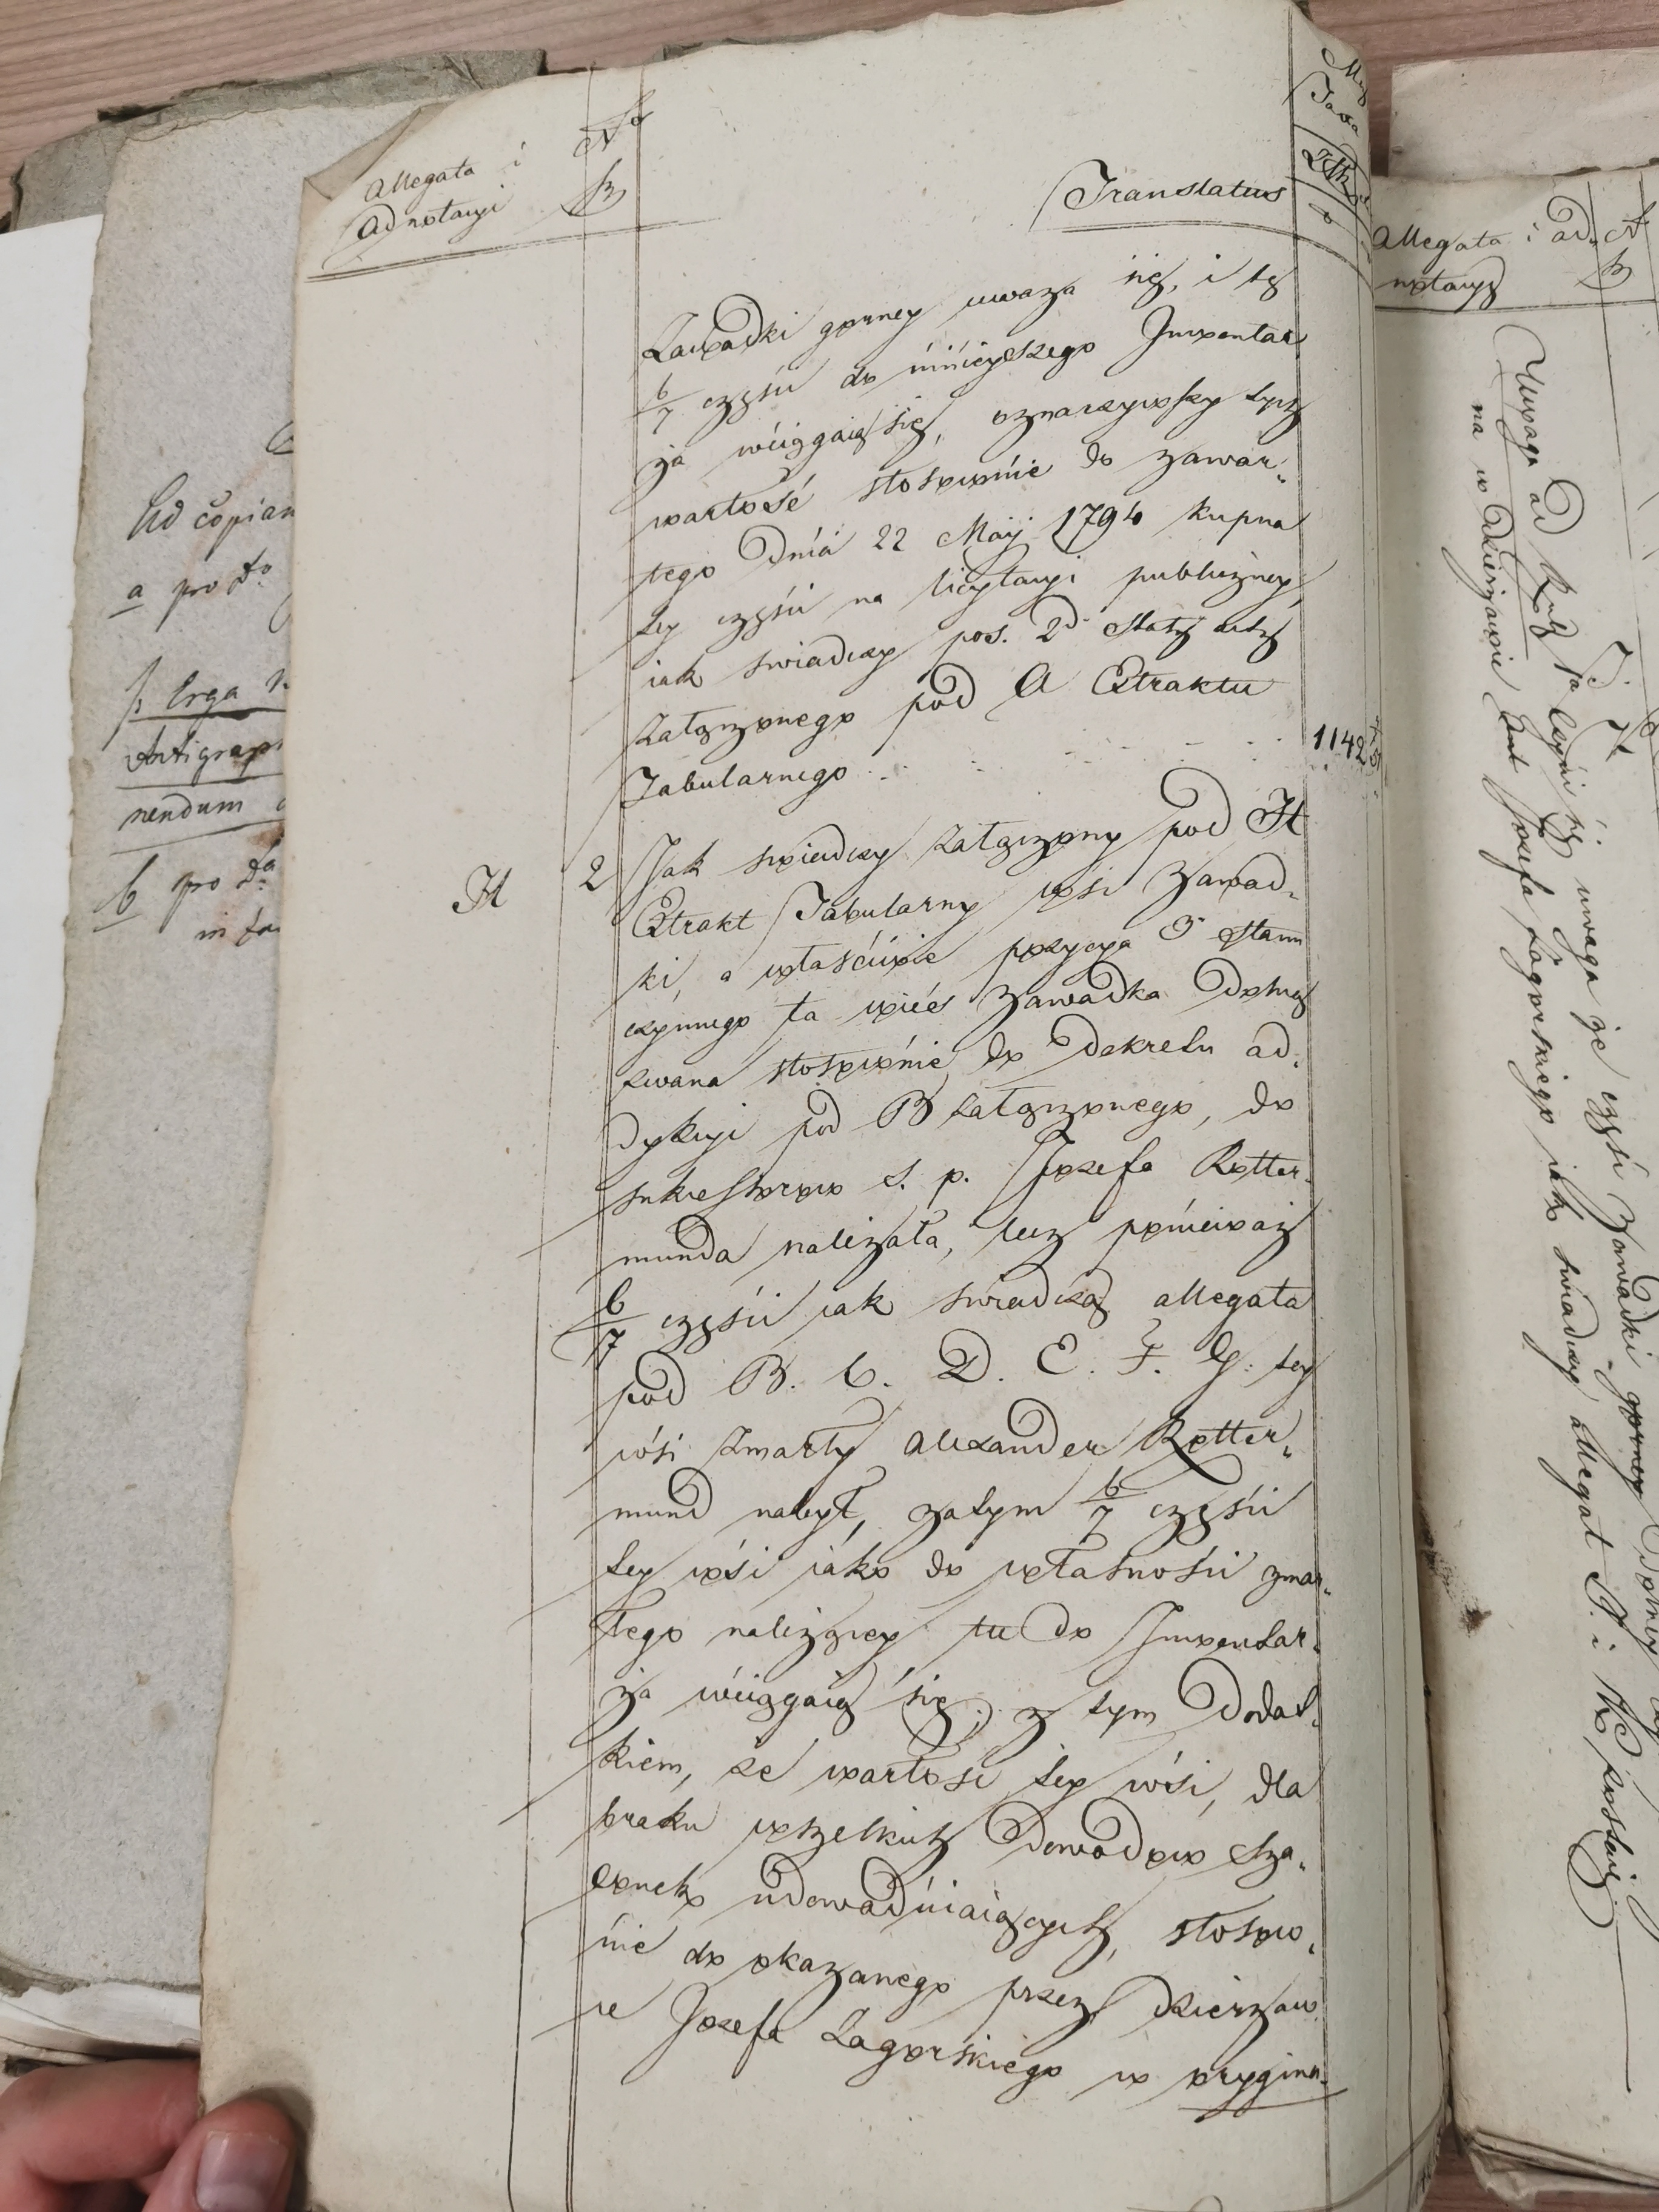 Allegata i
adnotacyi
No
Translatus
Zawadki gorney uważa się, i te
6/7 części do ninieyszego Inwentar
za wciągaią się, oznaczywszy tychż
wartość stosownie do zawar„
tego Dnia 22 Maij 1794 kupna
tey części na licytacyi publiczney,
iak swiadczy pos. 2da
załączonego pod A Extraktu
Tabularnego
1142
H
2 Jak swiadczy załączony pod H
Extrakt Tabularny wsi Zawad„
ki, a własciwie pozycya 3 stanu
czynnego ta wieś Zawadka Dolna
zwana stosownie do Dekretu ad„
dykcyi pod B załączonego, do
sukcessorow s. p. Jozefa Rotter„
munda należała, lecz ponieważ
6/7 części iak swiadczą allegata
pod B. C. D. E. F. G. tey
wsi zmarły Alexander Rotter„
mund nabył, zatym 6/7 części
tey wsi iáko do własności zmar„
łego należącey tu do Inwentar„
za wciągaią się, z tym Dodat„
kiem, że wartość tey wsi, dla
braku wszelkich Dowodow sza„
cunek udowadniaiących, stosow„
nie do okazanego przez Dzierżaw
ce Jozefa Zagorskiego w orygina„
Ad copiam
a pro do
Erga
nendum
b pro da
Allegata i ad„
notacye
Uwaga ad
uwaga że części Zawadki gorney Dolney
na w Dzierżawie Jozefa Zagorskiego iak swiadczy allegat I. i K